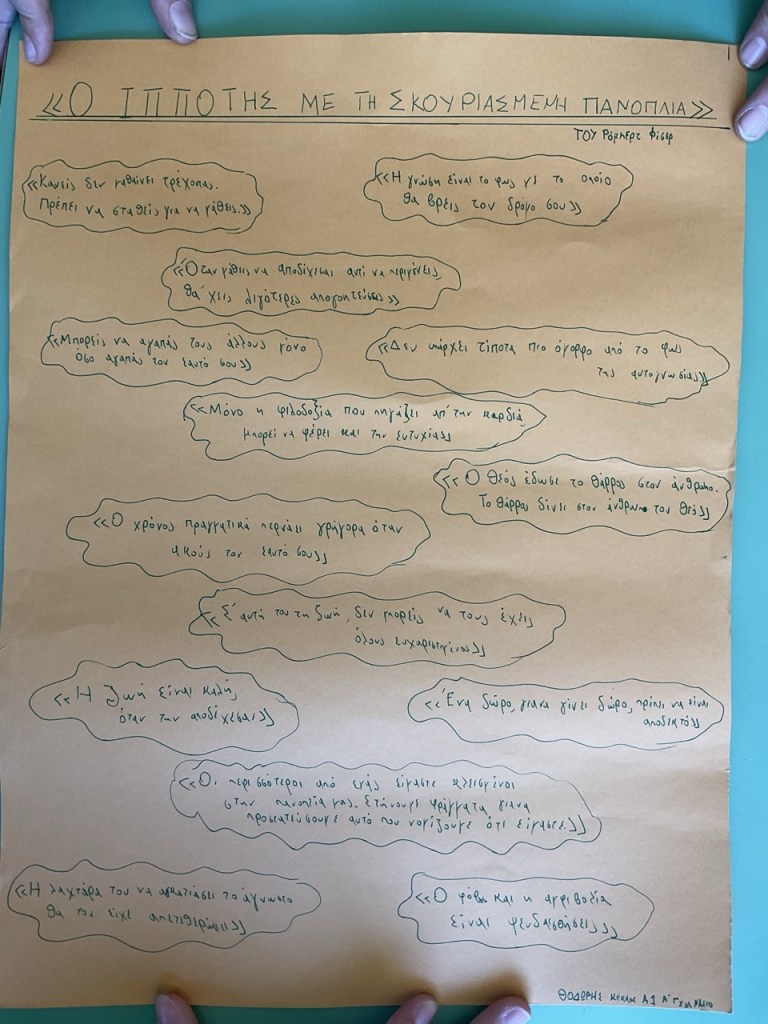 «Ο ΙΠΠΟΤΗΣ ΜΕ ΤΗ ΣΚΟΥΡΙΑΣΜΕΝΗ ΠΑΝΟΠΛΙΑ»
ΤΟΥ Ρόμπερτ Φίσερ
«Κανείς δεν μαθαίνει τρέχοντας.
Πρέπει να σταθείς για να μάθεις.»
«Η γνώση είναι το φως με το οποίο
θα βρεις τον δρόμο σου»
«Όταν μάθεις να αποδέχεσαι αντί να περιμένεις
θα΄χεις λιγότερες απογοητεύσεις»
«Μπορείς να αγαπάς τους άλλους μόνο
όσο αγαπάς τον εαυτό σου»
«Δεν υπάρχει τίποτα πιο όμορφο από το φως
της αυτογνωσίας»
«Μόνο η φιλοδοξία που πηγάζει απ΄την καρδιά
μπορεί να φέρει και την ευτυχία»
«Ο Θεός έδωσε το θάρρος στον άνθρωπο.
Το θάρρος δίνει στον άνθρωπο τον Θεό»
«Ο χρόνος πραγματικά περνάει γρήγορα όταν
ακούς τον εαυτό σου»
«Σ΄αυτή τη ζωή, δεν μπορείς να τους έχεις
όλους ευχαριστημένους»
«Η ζωή είναι καλή,
όταν την αποδέχεσαι»
«Ένα δώρο, για να γίνει δώρο, πρέπει να είναι
αποδεκτό»
«Οι περισσότεροι από εμάς είμαστε κλεισμένοι
στην πανοπλία μας. Στήνουμε φράγματα για να
προστατεύσουμε αυτό που νομίζουμε ότι είμαστε.»
«Η λαχτάρα του να αγκαλιάσει το άγνωστο
θα τον είχε απελευθερώσει»
«Ο φόβος και η αμφιβολία
είναι ψευδαισθήσεις»
ΘΟΔΩΡΗΣ Α1